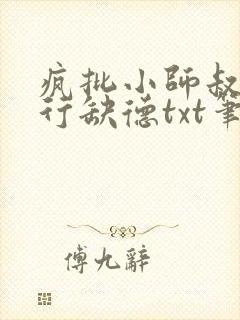 疯批小师叔
行缺德txt笔
傅九辭